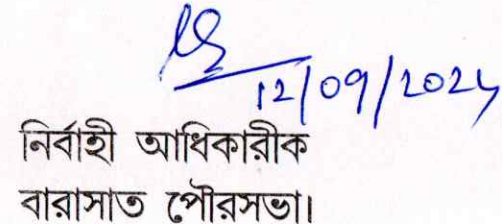 12/09/2024
নির্বাহী আধিকারীক
বারাসাত পৌরসভা।